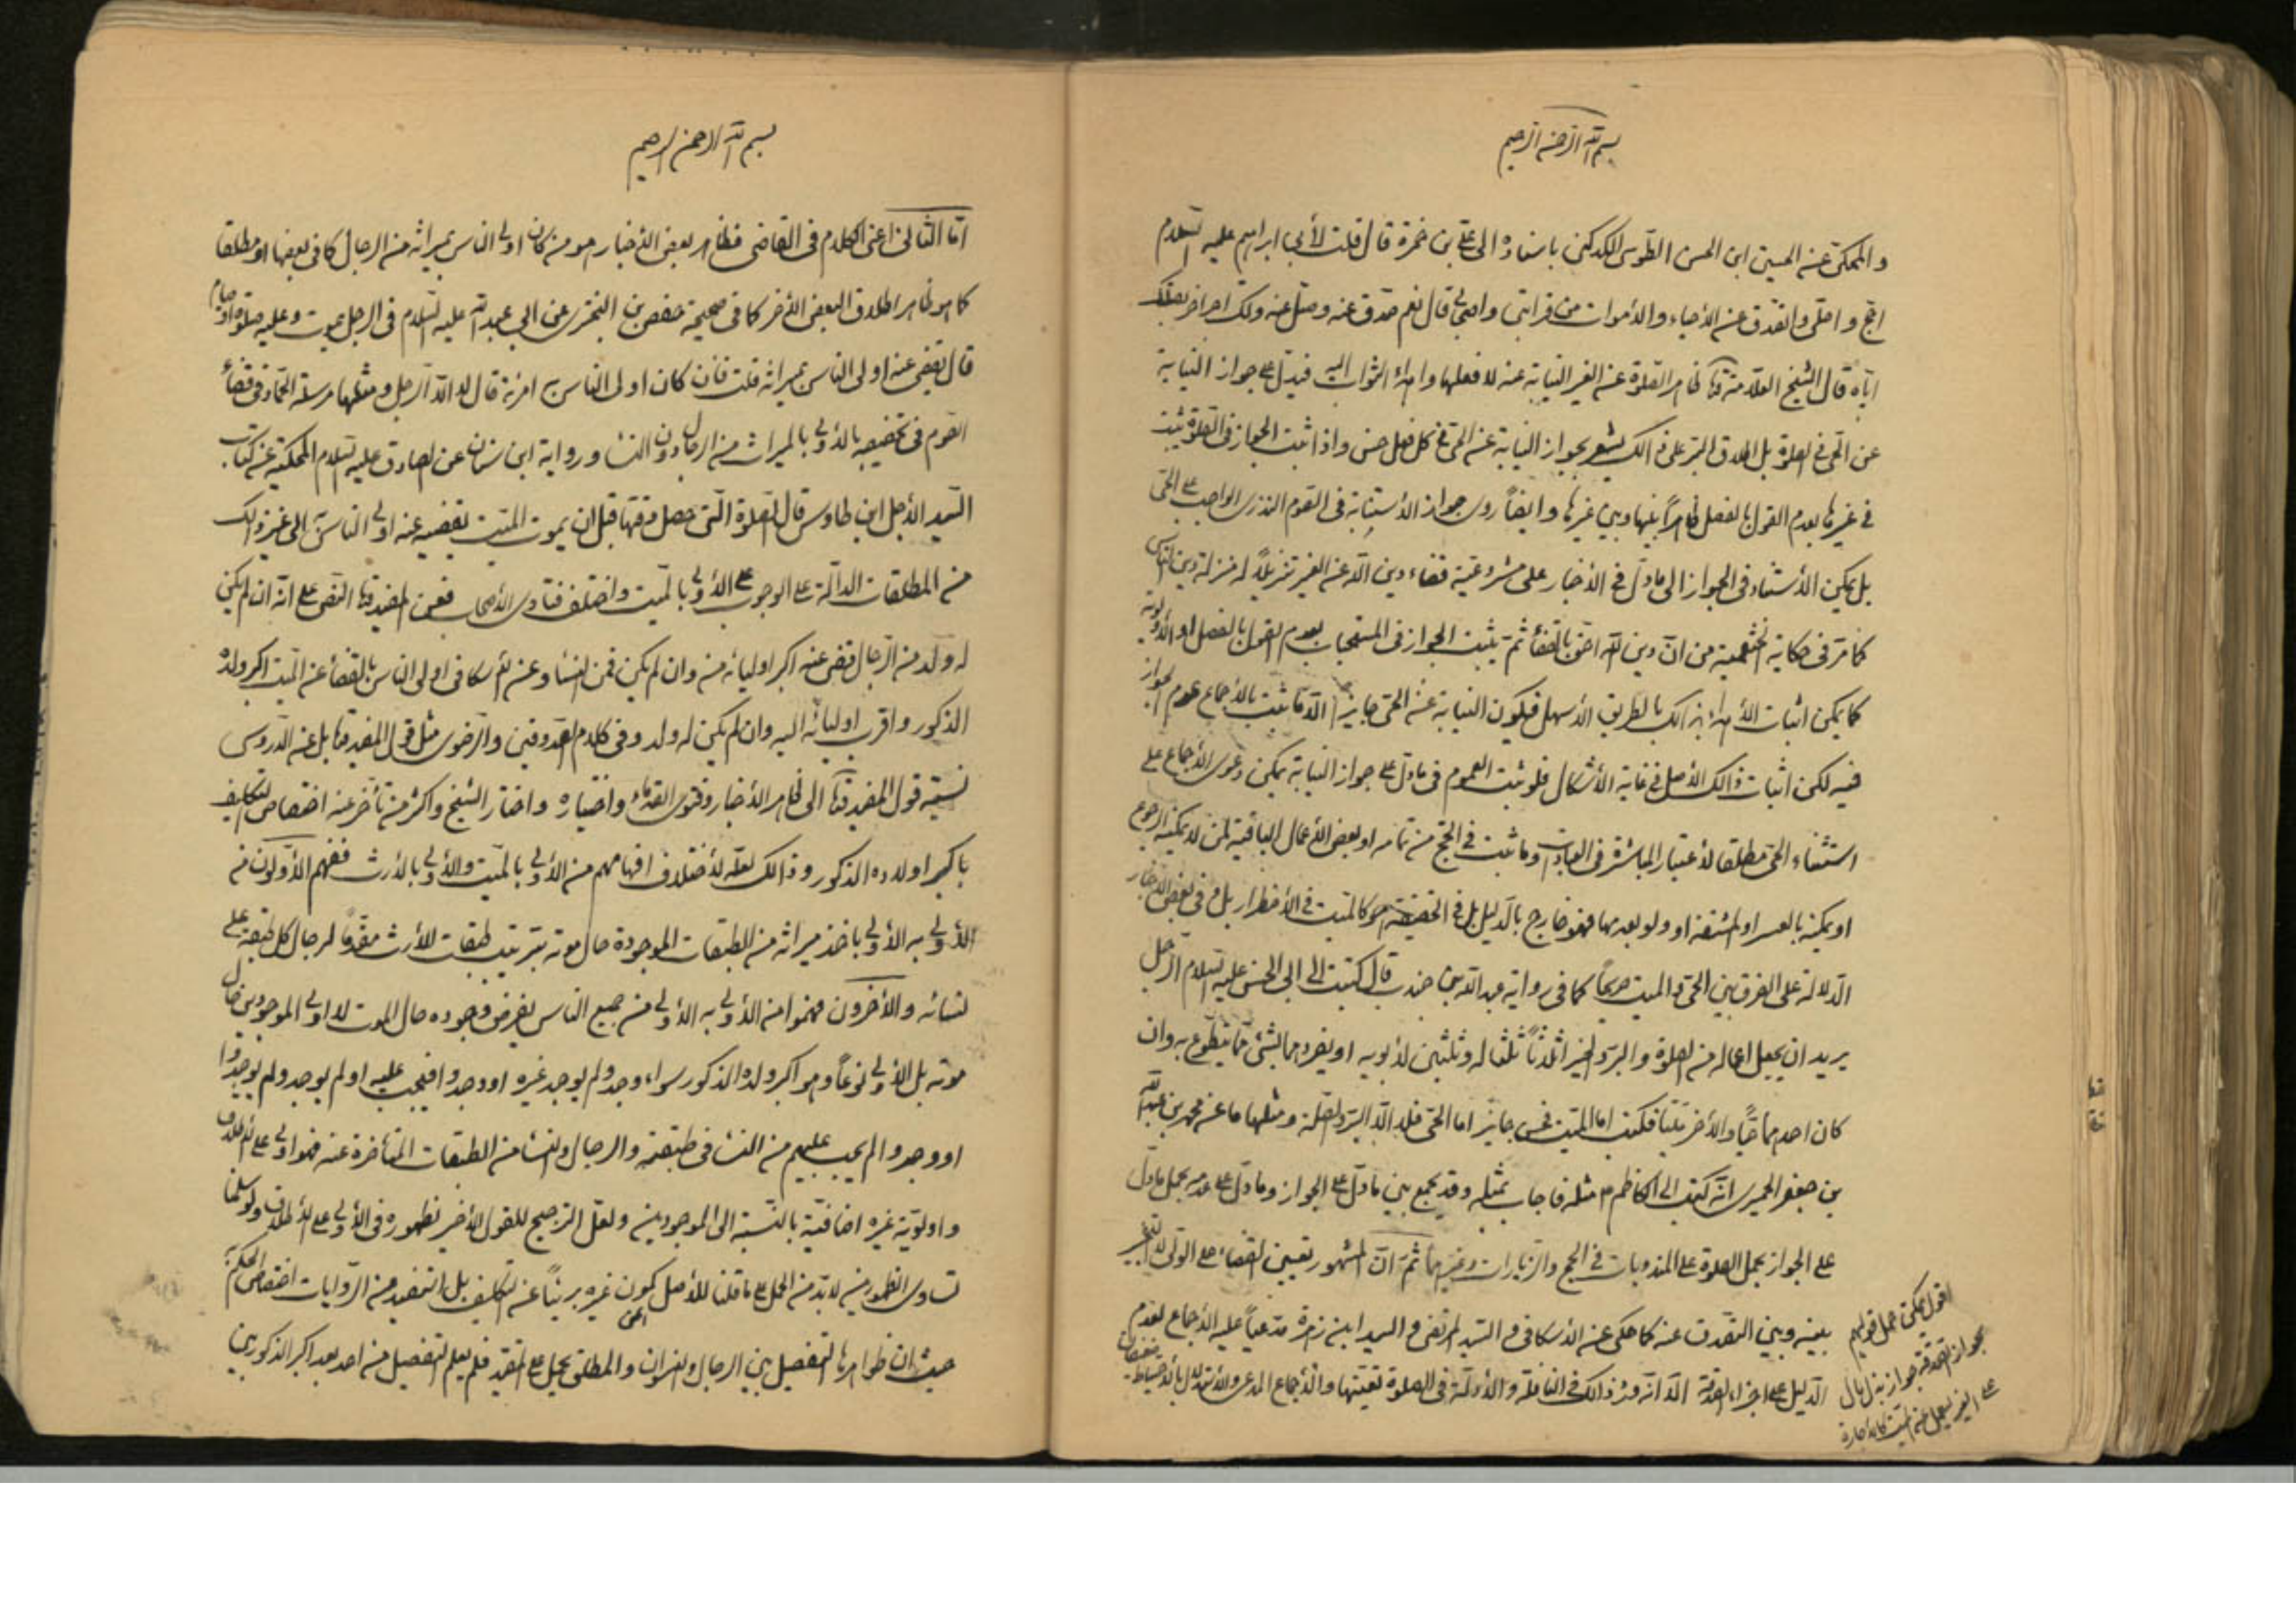 بسم الله الرحمن الرحيم
والمحكى عنه الحسين ابن الحسن الطوسى الكدكنى باسناده الى على بن حمزة قال قلت لأبى ابراهيم عليه السلام
احج واصلى واتصدق عنه الأحياء والأموات من قرابتى واصحابى قال نعم تصدق عنه وصل عنه ولك اجر اخر بصلتك
اياه قال الشيخ العلامة ظاهر الصلوة عنه الغير النيابة عنه لا فعلها واهداء الثواب اليه فيدل على جواز النيابة
عن الحى فى الصلوة بل اطلاق البر على ذالك يشعر بجواز النيابة عنه الحى فى كل فعل حسن واذا ثبت الجواز فى الصلوة ثبت
فى غيرها بعدم القول بالفصل ظاهراً بينها وبين غيرها وايضاً روى جواز الأستنابة فى الصوم النذرى الواجب على الحى
بل يمكن الأستناد فى الجواز الى ما دل فى الأخبار على مشروعية قضاء دين الله عنه الغير تنزيلاً له منزلة دين الناس
كما مر فى حكاية الخثعمية من ان دين الله احق بالقضاء ثم يثبت الجواز فى المستحبات بعدم القول بالفصل او الأولوية
كما يمكن اثبات الأهداء بذالك بالطريق الأسهل فيكون النيابة عنه الحى جايزاً الا ما ثبت بالأجماع عدم الجواز
فيه لكن اثبات ذالك الأصل فى غاية الأشكال فلو ثبت العموم فى ما دل على جواز النيابة يمكن دعوى الأجماع على
استثناء الحى مطلقا لأعتبار المباشرة فى العبادات وما ثبت فى الحج من تمامه او بعض الأعمال الباقية لمن لا يمكنه الرجوع
او يمكنه بالعسر او المشقة او ولو بعدهما فهو خارج بالدليل بل فى الحقيقة هو كالميت فى الأضطرار بل فى بعض الأخبار
الدلالة على الفرق بين الحى والميت صريحاً كما فى رواية عبدالله بن جندب قال كتبت الى ابى الحسن عليه السلام الرجل
يريد ان يجعل اعماله من الصلوة والبر والخير اثلاثاً ثلثا له وثلثين لأبويه او يفردهما بشئ مما يتطوع به وان
كان احدهما حياً والأخر ميتا فكتب اما الميت فحسن جايز اما الحى فلا الا البر والصلة ومثلها ما عنه محمد بن عبدالله
بن جعفر الحميرى انه كتب الى الكاظم م مثله فاجاب بمثله وقد يجمع بين ما دل على الجواز وما دل على عدمه بحمل ما دل
على الجواز بحمل الصلوة على المندوبات فى الحج والزيارات وغيرهما ثم ان المشهور تعيين القضاء على الولى لا التخيير
بينه وبين التصدق عنه كما حكى عنه الأسكافى والسيد المرتضى والسيد ابن زهرة مدعياً عليه الأجماع لعدم
الدليل على اجزاء الصدقة الا انه ورد ذالك فى النافلة والأدلة فى الصلوة تعينها والأجماع المدعى والأستدلال بالأحتياط
اقول يمكن حمل قولهم
بجواز الصدقة جواز بذل مال
على الغير ليعمل عنه الميت كالأجارة
بسم الله الرحمن الرحيم
اما الثالث اعنى الكلام فى القاضى فظاهر بعض الأخبار هو من كان اولى الناس بميراثه من الرجال كما فى بعضها او مطلقا
كما هو ظاهر اطلاق البعض الأخر كما فى صحيحة حفص بن البخترى عن ابى عبدالله عليه السلام فى الرجل يموت وعليه صلوة او صيام
قال يقضى عنه اولى الناس بميراثه قلت فان كان اولى الناس به امرئة قال لا الا الرجل ومثلها مرسلة الحماد فى قضاء
الصوم فى تخصيصه بالأولى بالميراث من الرجال دون النساء ورواية ابن سنان عن الصادق عليه السلام المحكية عنه كتاب
السيد الأجل ابن طاوس قال الصلوة التى حصل وقتها قبل ان يموت الميت يقضيه عنه اولى الناس به الى غير ذالك
من المطلقات الدالة على الوجوب على الأولى بالميت واختلف فتاوى الأصحاب فعن المفيد النص على انه ان لم يكن
له ولد من الرجال قضى عنه اكبر اوليائه منه وان لم يكن فمن النساء وعنه الأسكافى اولى الناس بالقضاء عنه الميت اكبر ولده
الذكور واقرب اوليائه اليه وان لم يكن له ولد وفى كلام الصدوقين والرضوى مثل قول المفيد بل عنه الدروس
نسبة قول المفيد الى ظاهر الأخبار وفتوى القدماء واختياره واختار الشيخ واكثر من تأخر عنه اختصاص التكليف
باكبر اولاده الذكور وذالك لعله لأختلاف افهامهم من الأولى بالميت والأولى بالأرث ففهم الأولون من
الأولى به الأولى باخذ ميراثه من الطبقات الموجودة حال موته بترتيب طبقات الأرث مقدماً لرجال كل طبقة على
نسائه والأخرون فهموا من الأولى به الأولى من جميع الناس بفرض وجوده حال الموت لا اولى الموجودين حال
موته بل الأولى نوعاً وهو اكبر ولده الذكور سواء وجد ولم يوجد غيره او وجدوا فيجب عليه او لم يوجد ولم يوجدوا
او وجدوا لم يجب عليهم من النساء فى طبقته والرجال والنساء من الطبقات المتأخرة عنه فهو اولى على الأطلاق
واولوية غيره اضافية بالنسبة الى الموجودين ولعل الترجيح للقول الأخير لظهوره فى الأولى على الأطلاق ولو سلمنا
تساوى الظهورين لابد من الحمل على ما قلنا للأصل كون غيره بريئاً عنه التكليف بل المستفيد من الروايات اختصاص الحكم به
حيث ان ظواهرها التفصيل بين الرجال والنسوان والمطلق يحمل على المقيد فلم يعلم التفصيل من احد بعد اكبر الذكور بين